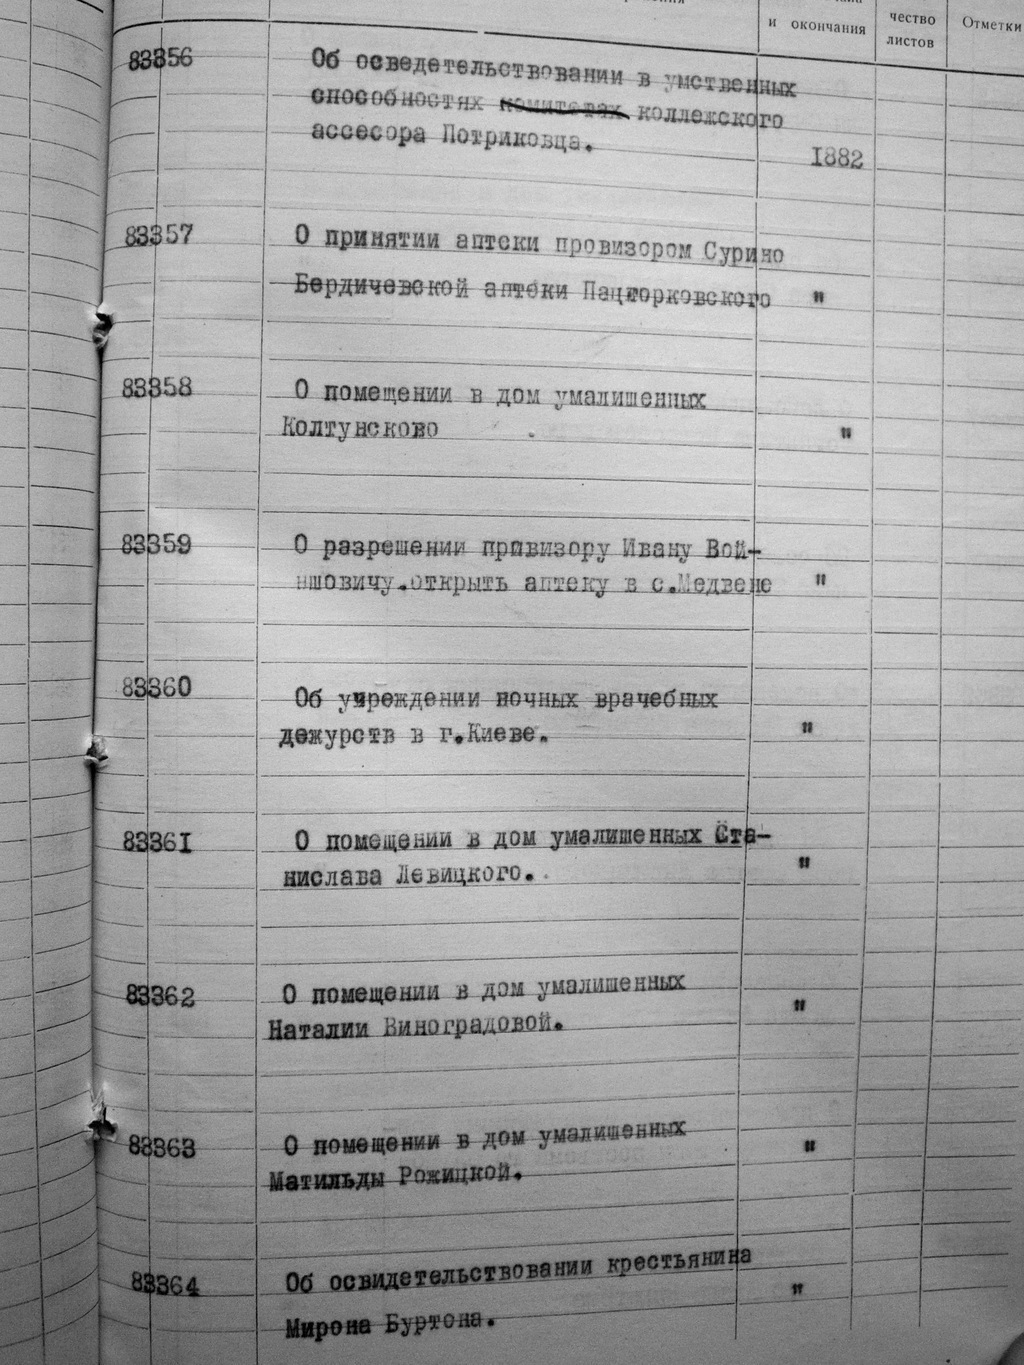 и окончания
чество
листов
Отметки
83356 Об осведетельствовании в умственных
способностях комитетах коллежского
ассесора Потриковца.
1882
83357 О принятии аптеки провизором Сурино
Бердичевской аптеки Пацторковского "
83358 О помещении в дом умалишенных
Колтунсково "
83359 О разрешении привизору Ивану Вой-
ншовичу.открыть аптеку в с.Медвене "
83360 Об учреждении ночных врачебных
дежурств в г.Киеве. "
83361 О помещении в дом умалишенных Ста-
нислава Левицкого. "
83362 О помещении в дом умалишенных
Наталии Виноградовой. "
83363 О помещении в дом умалишенных "
Матильды Рожицкой.
83364 Об освидетельствовании крестьянина
Мирона Буртона. "